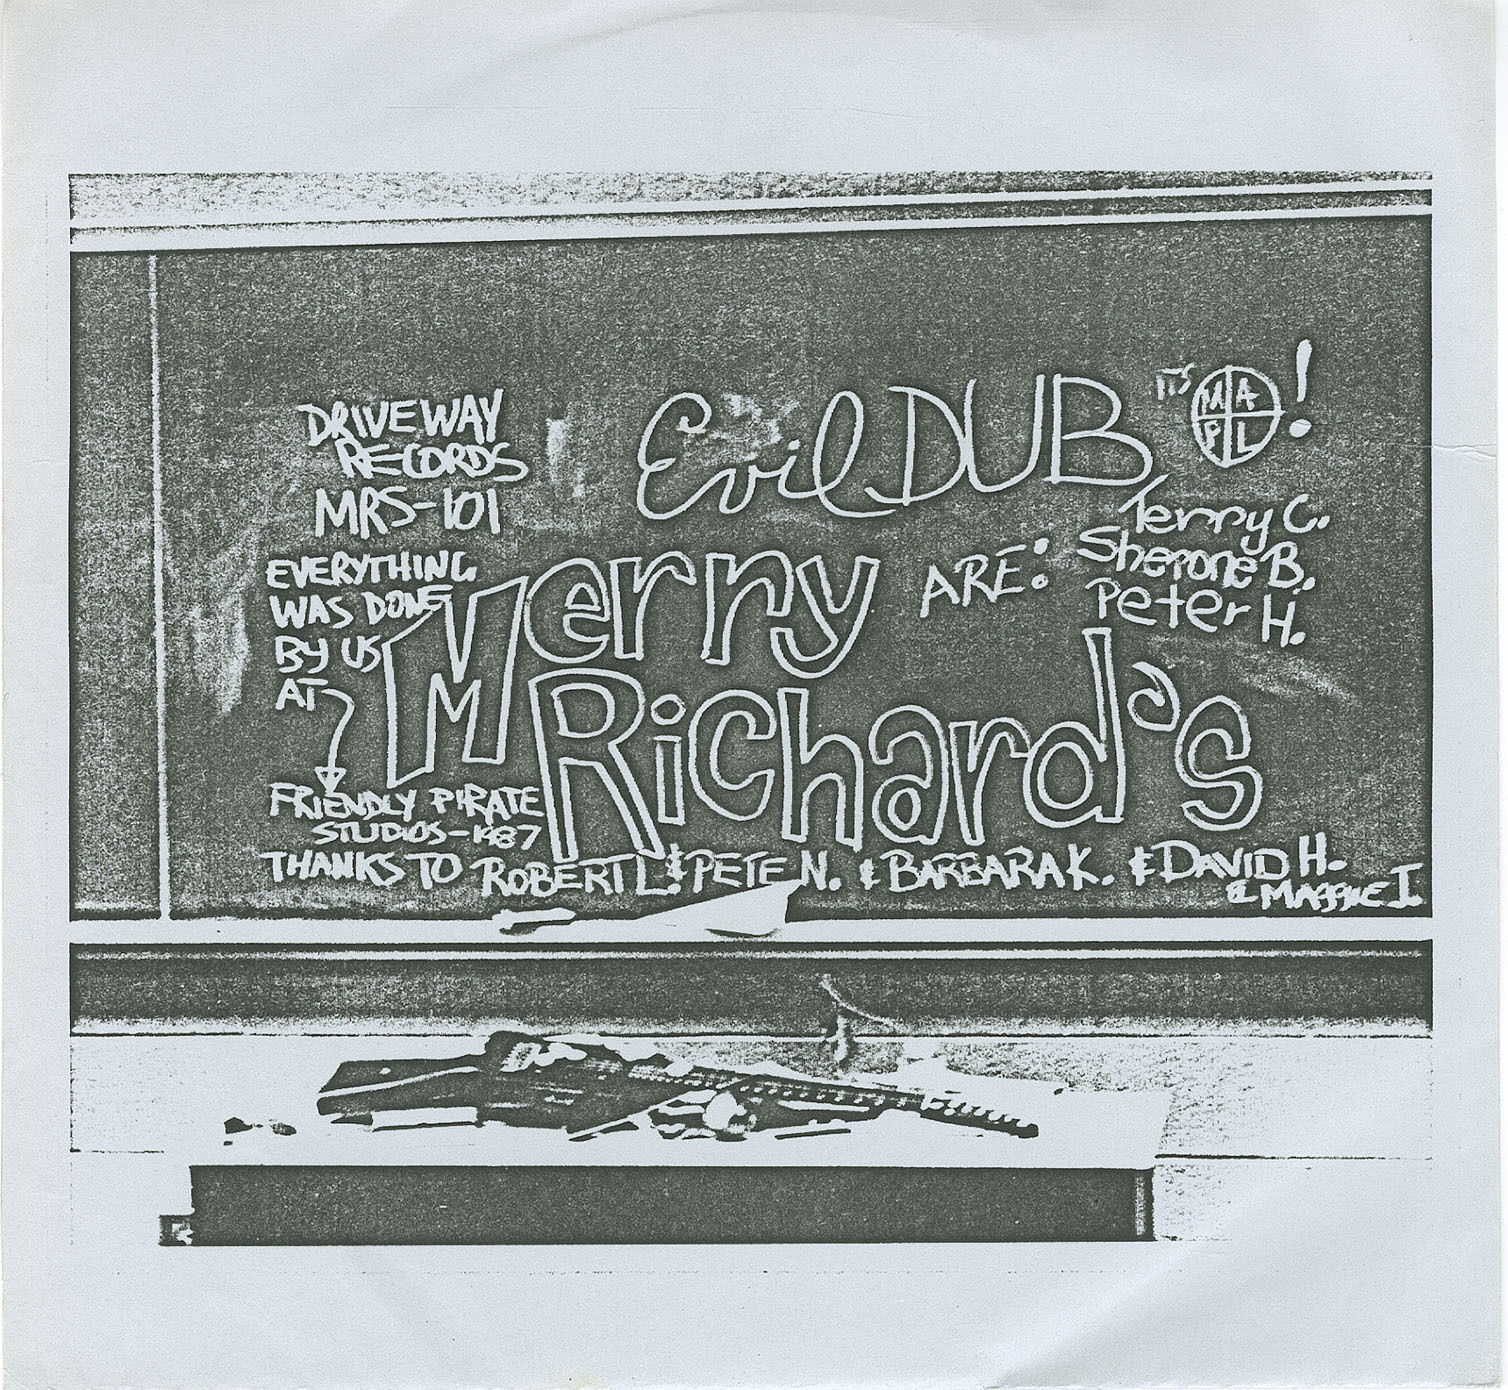 DRIVEWAY
RECORDS
MRS-101
Evil DUB
ITS MAPL !
EVERYTHING
WAS DONE
BY US
AT
FRIENDLY PIRATE
STUDIOS-1987
Merry
Richard's
ARE:
Terry C.
Sherone B.
Peter H.
THANKS TO ROBERT L. & PETE N. & BARBARA K. & DAVID H.
& MAGGIE I.